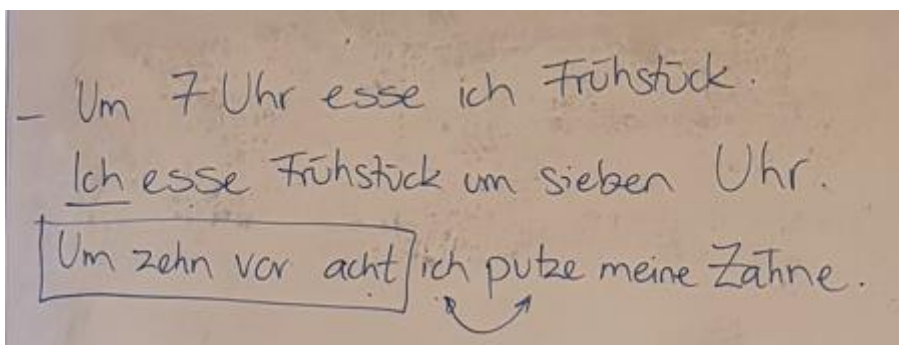 - Um 7 Uhr esse ich Frühstück.
Ich esse Frühstück um sieben Uhr.
Um zehn vor acht ich putze meine Zähne.